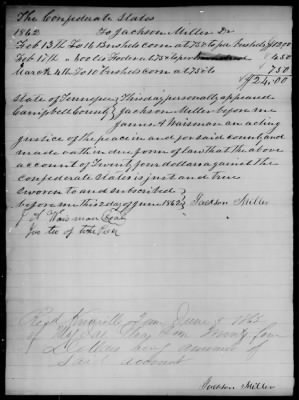 The Confederate States
1862 To Jackson Miller Dr
Feb 13th To 16 Bushels corn at 75cts per Bushel $12.00
Feb 17th " 400 lbs Fodder 4.50
March 4th To 10 Bushels corn at 75cts 7.50
$24.00
State of Tennessee This day personally appeared
Campbell County Jackson Miller before me
James H an acting
Justice of the peace in and for said county and
made oath in due form of law that the above
account of Twenty four dollars against the
confederate States is just and true
Sworn to and subscribed
before me this 2 day of June 1862 Jackson Miller
J H
Justice of the Peace
Recd Knoxville Ten June 5 1862
of Maj Twenty four
Dollars being amount of
said account
Jackson Miller